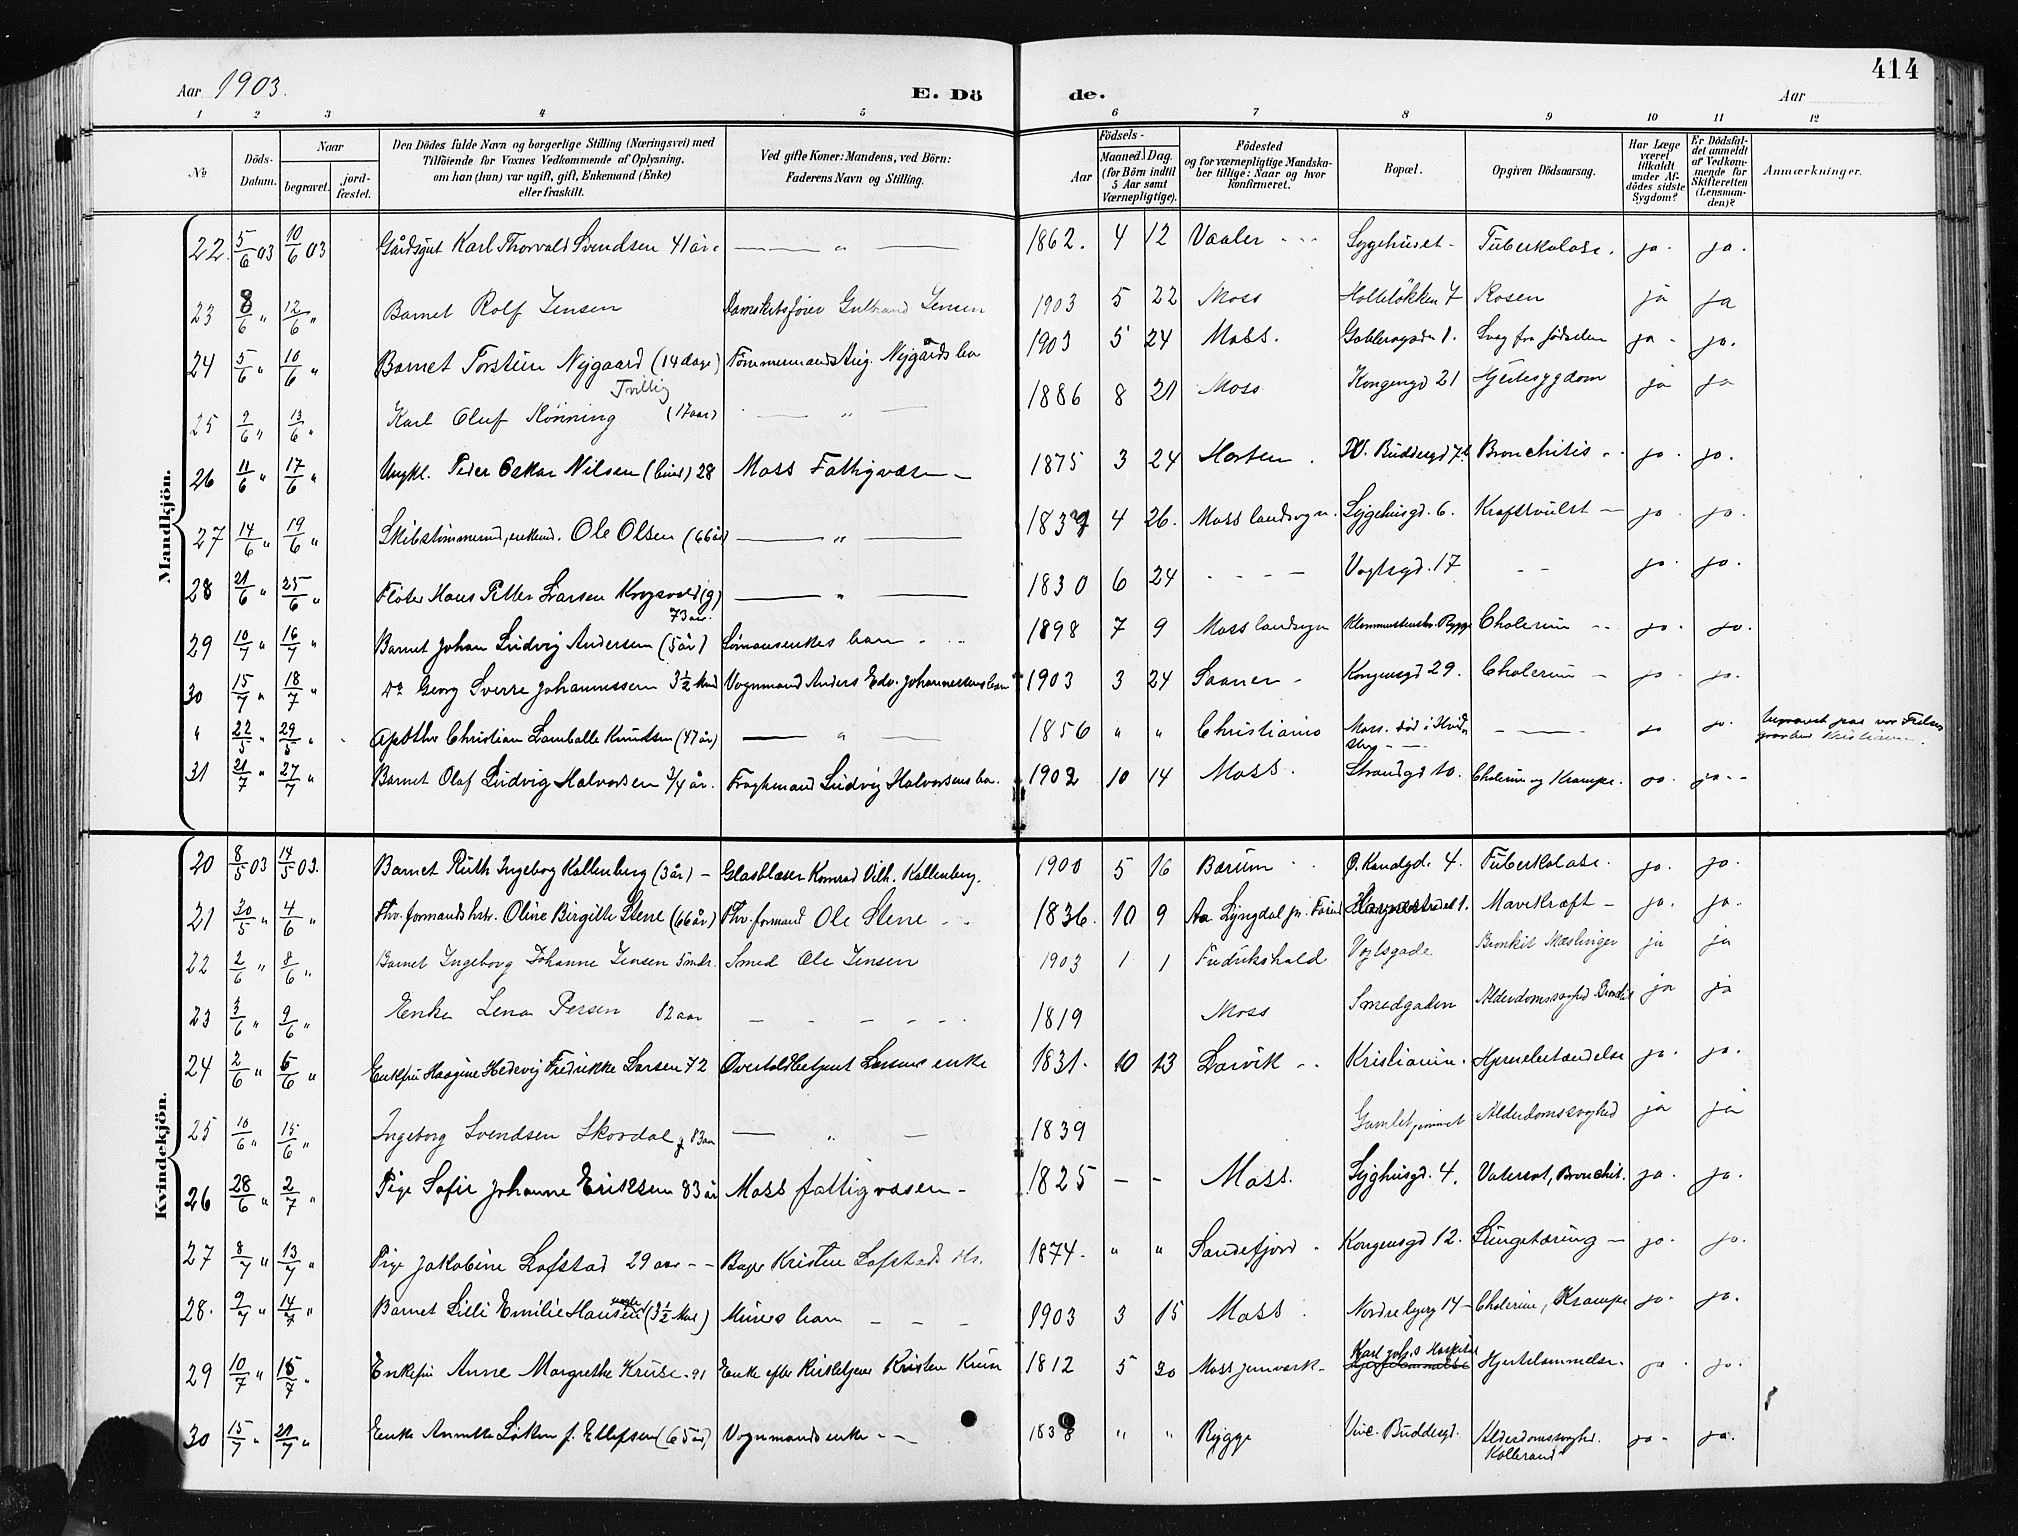 414
Aar 1903.
E. Dö de.
Aar
1 2 3 4 5 6 7 8 9 10 11 12
No
Döds-Datum.
Naar
begravet.
jord-fæstet.
Den Dödes fulde Navn og borgerlige Stilling (Næringsvei) med Tilföiende for Voxnes Vedkommende af Oplysning, om han (hun) var ugift, gift, Enkemand (Enke) eller fraskilt.
Ved gifte Koner: Mandens, ved Börn: Faderens Navn og Stilling.
Födsels-
Aar
Maaned. Dag.
(for Börn indtil 5 Aar samt Værnepligtige).
Födested og for værnepligtige Mandska-ber tillige: Naar og hvor konfirmeret.
Bopæl.
Opgiven Dödsaarsag.
Har Læge været tilkaldt under Af-dödes sidste Sygdom?
Er Dödsfal-det anmeldt af Vedkom-mende for Skifteretten (Lensman-den)?
Anmærkninger.
Mandkjön.
22. 5/6 03 10/6 03 Gårdsgut Karl Thorvald Svendsen 41 år. — " — 1862. 4 12 Vaaler Sygehuset Tuberkolose. ja. ja.
23 8/6 " 12/6 " Barnet Rolf Jensen Damskibsfører Gulbrand Jensen 1903 5 22 Moss Holleløkken 7 Rosen ja ja
24 5/6 " 10/6 " Barnet Torstein Nygaard (14 dage) Tvillig Tømmermand Aug. Nygårds ba 1903 5 24 Moss. 1. Svag fra fødselen ja ja.
25 9/6 " 13/6 " Karl Oluf Rönning (17 aar) — " — 1886 8 21 Moss Kongensgd 21 Hjertesygdom ja ja
26 11/6 " 17/6 " Ungkl. Peder Oskar Nilsen 28 Moss Fattigvæsen — 1875 3 24 Horten. Buddesgd 7b Bronchitis ja. ja.
27 14/6 " 19/6 " Skibstimmermd, enkemd. Ole Olsen (66 år) — " — 1837 4 26. Moss landsogn. Sygehusgd. 6. Kræftsvulst — ja. ja.
28 21/6 " 25/6 " Fløter Hans Petter Larsen (g) 73 år. — " — 1830 6 24 - - - - Vogtsgd. 17 - - ja. ja.
29 10/7 " 16/7 " Barnet Johan Ludvig Andersen (5 år) Sømansenkes barn 1898 7 9 Moss landsogn Rygge Cholerin ja. ja.
30 15/7 " 18/7 " Do Georg Sverre Johannessen 3 1/2 Mnd Vognmand Anders Edv. Johannessens barn 1903 3 24 Saaner Kongensgd 29. Cholerin — ja. ja.
" 22/5 " 29/5 " Apother Christian Lamballe Knudsen (47 år) — " — 1856 " " Christiania Moss. død i — ja ja. begravet paa vor Frelsers gravlund Kristiania.
31 21/7 " 27/7 " Barnet Olaf Ludvig Halvorsen 3/4 år. Fragtmand Ludvig Halvorsens ba. 1902 10 14 Moss. Strandgd 10. Cholerin og Krampe. ja. ja.
Kvindekjön.
20 8/5 03 14/5 03. Barnet Ruth Ingeborg Kallenberg (3 år) — Glasblæser Konrad Vilh. Kallenberg. 1900 5 16 Bærum Ø. Kanalgd. 4. Tuberkolose. ja. ja.
21 30/5 " 4/6 " Fhv. formands hstr. Oline Birgitte Stene (66 år) Fhv. formand Ole Stene 1836. 10 9 Aa Lyngdal pr. 1. Mavekræft — ja. ja.
22 2/6 " 8/6 " Barnet Ingeborg Johanne Jensen 5 mdr. Smed Ole Jensen 1903 1 1 Fredrikshald Vogtsgade Bronkit Mæslinger ja ja
23 3/6 " 9/6 " Enke Lena Persen 82 aar — — — — 1819 Moss Smedgaden Alderdomssvaghed ja ja
24 2/6 " 6/6 " Enkfru Haagine Hedevig Fredrikke Larsen 72 Overtoldbetjent Larsens enke 1831. 10 13 Larvik Kristiania. Hjernebetændelse ja. ja.
25 10/6 " 15/6 " Ingeborg Svendsen Skovdal g 83 aar — " — 1839 Gamlehjemmet Alderdomssvaghed ja ja
26 28/6 " 2/7 " Pige Sofie Johanne Eriksen 83 år Moss fattigvæsen — 1825 — — Moss. Syghusgd. 4. Vatersot, Bronchit. ja. ja.
27 8/7 " 13/7 " Pige Jakobine Lofstad 29 aar — Bager Kristen Lofstads dtr. 1874. " " Sandefjord. Kongensgd 12. Lungetæring — ja. ja.
28. 9/7 " 14/7 " Barnet Lilli Emilie Hansen (3 1/2 Mnd) Murers barn — — — 1903 3 15 Moss. Nordre byerg 14 — Cholerine, Krampe ja. ja.
29 10/7 " 15/7 " Enkefru Anne Margrethe Kruse. 91 Enke efter Kristen Kruse 1812 5 30 Moss jernværk. Karl Joh.s Hospital Hjertelammelse. ja. ja.
30 15/7 " 21/7 " Enke Annette Løken f. Ellefsen (65 år) Vognmands enke — 1838 " " Rygge Vinc. Buddesgd. Alderdomssvaghd. ja. ja.